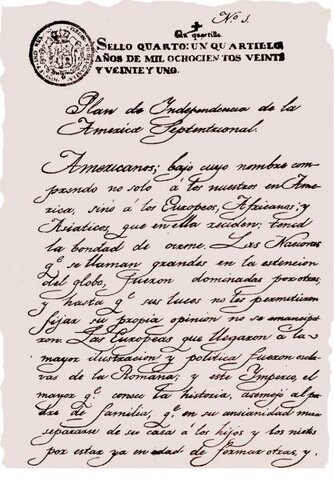 Nº 1.
Un quartillo
SELLO QUARTO: UN QUARTILLO
AÑOS DE MIL OCHOCIENTOS VEINTE
Y VEINTE Y UNO.
Plan de Independencia de la
America Septentrional.
Americanos; bajo cuyo nombre com
prendo no solo á los nuestros en Ame
rica, sinó á los Europeos, Africanos, y
Asiaticos, que en ella reciden; tened
la bondad de oirme. Las Naciones
q.e se llaman grandes en la estencion
del globo, fueron dominadas por otras,
y hasta q.e sus luces no les permitieron
fijar su propia opinion no se emancipa
ron. Las Europeas que llegaron á la
mayor ilustracion y politica fueron escla
vas de la Romana; y este Imperio, el
mayor q.e conoce la historia, asemejó al pa
dre de familia, q.e en su ancianidad mira
separarse de su casa á los hijos y los nietos
por estar ya en edad de formar otras, y